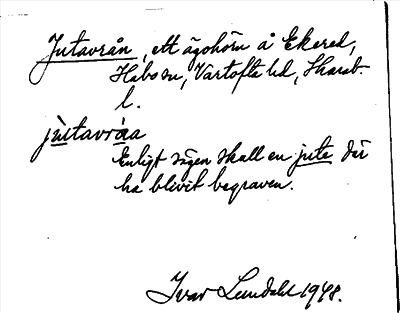 Jutavrån, ett ägohörn å Ekered,
Habo sn, Vartofta hd, Skarab.
l.
jùtavråa
Enligt sägen skall en jute där
ha blivit begraven.
Ivar Lundahl 1948.